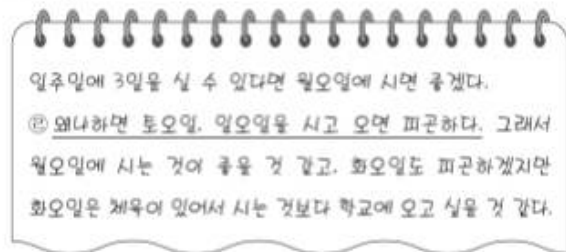 일주일에 3일을 실 수 있다면 월오일에 시면 좋겠다.
㉣ 왜나하면 토오일, 일오일을 시고 오면 피곤하다. 그래서
월오일에 시는 것이 좋을 것 같고, 화오일도 피곤하겠지만
화오일은 체육이 있어서 시는 것보다 학교에 오고 싶을 것 같다.